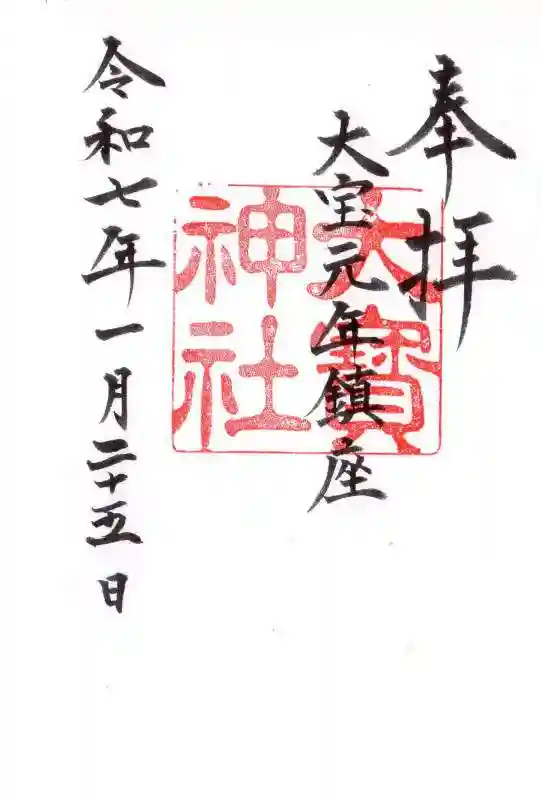 奉拝
大宝元年鎮座
大寳神社
令和七年一月二十五日